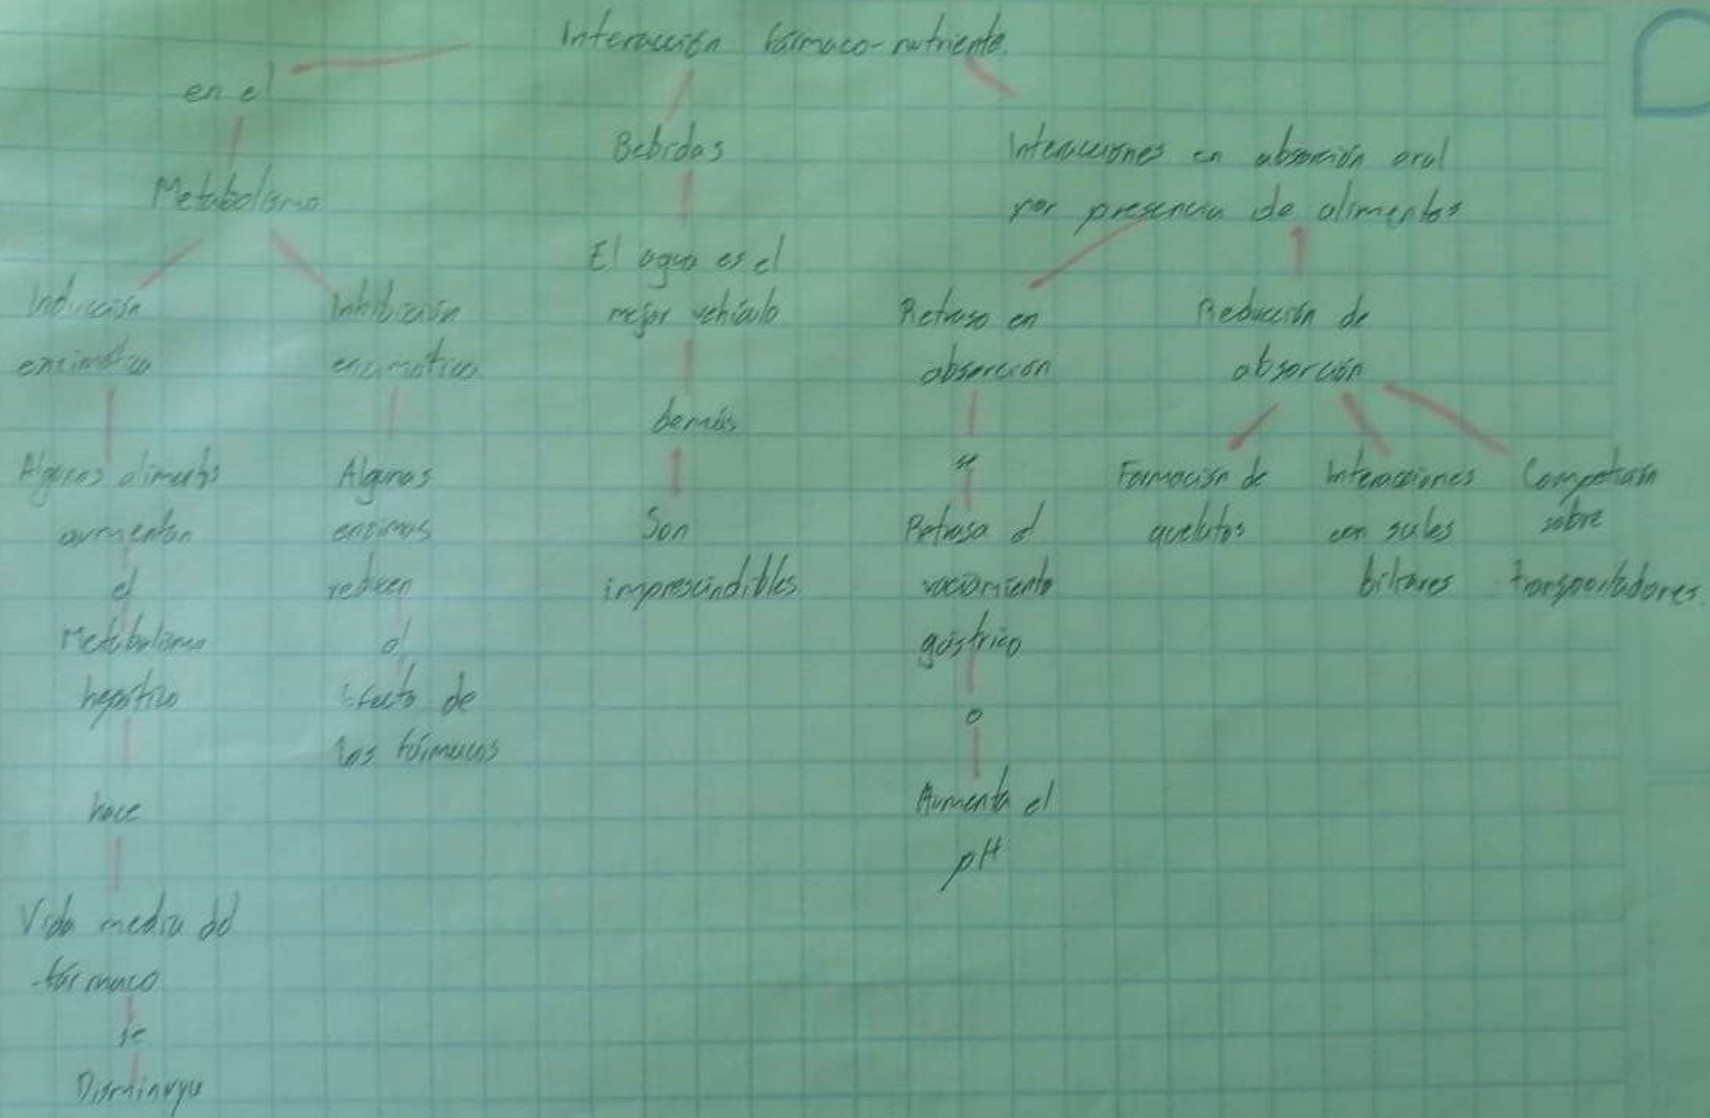 Interacción fármaco-nutriente.
en el
Metabolismo
Inducción
enzimática
Algunos alimentos
aumentan
el
Metabolismo
hepático
hace
Vida media del
fármaco
se
Disminuya
Inhibición
enzimática
Algunas
enzimas
reducen
el
efecto de
los fármacos
Bebidas
El agua es el
mejor vehículo
demás
Son
imprescindibles.
Interacciones en absorción oral
por presencia de alimentos
Retraso en
absorción
se
Retrasa el
vaciamiento
gástrico
o
Aumenta el
pH
Reducción de
absorción
Formación de
quelatos
Interacciones
con sales
biliares
Competición
sobre
transportadores.